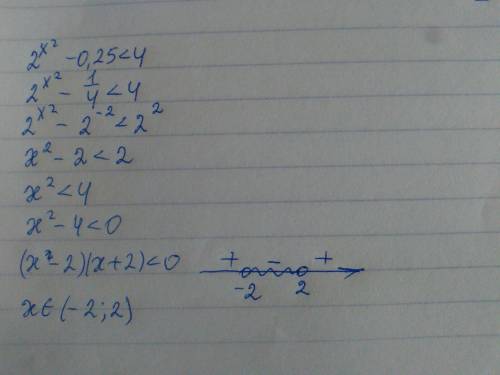 2^x² - 0,25 < 4
2^x² - 1/4 < 4
2^x² - 2^-2 < 2^2
x² - 2 < 2
x² < 4
x² - 4 < 0
(x - 2)(x + 2) < 0 + - +
-2 2
x ∈ (-2; 2)